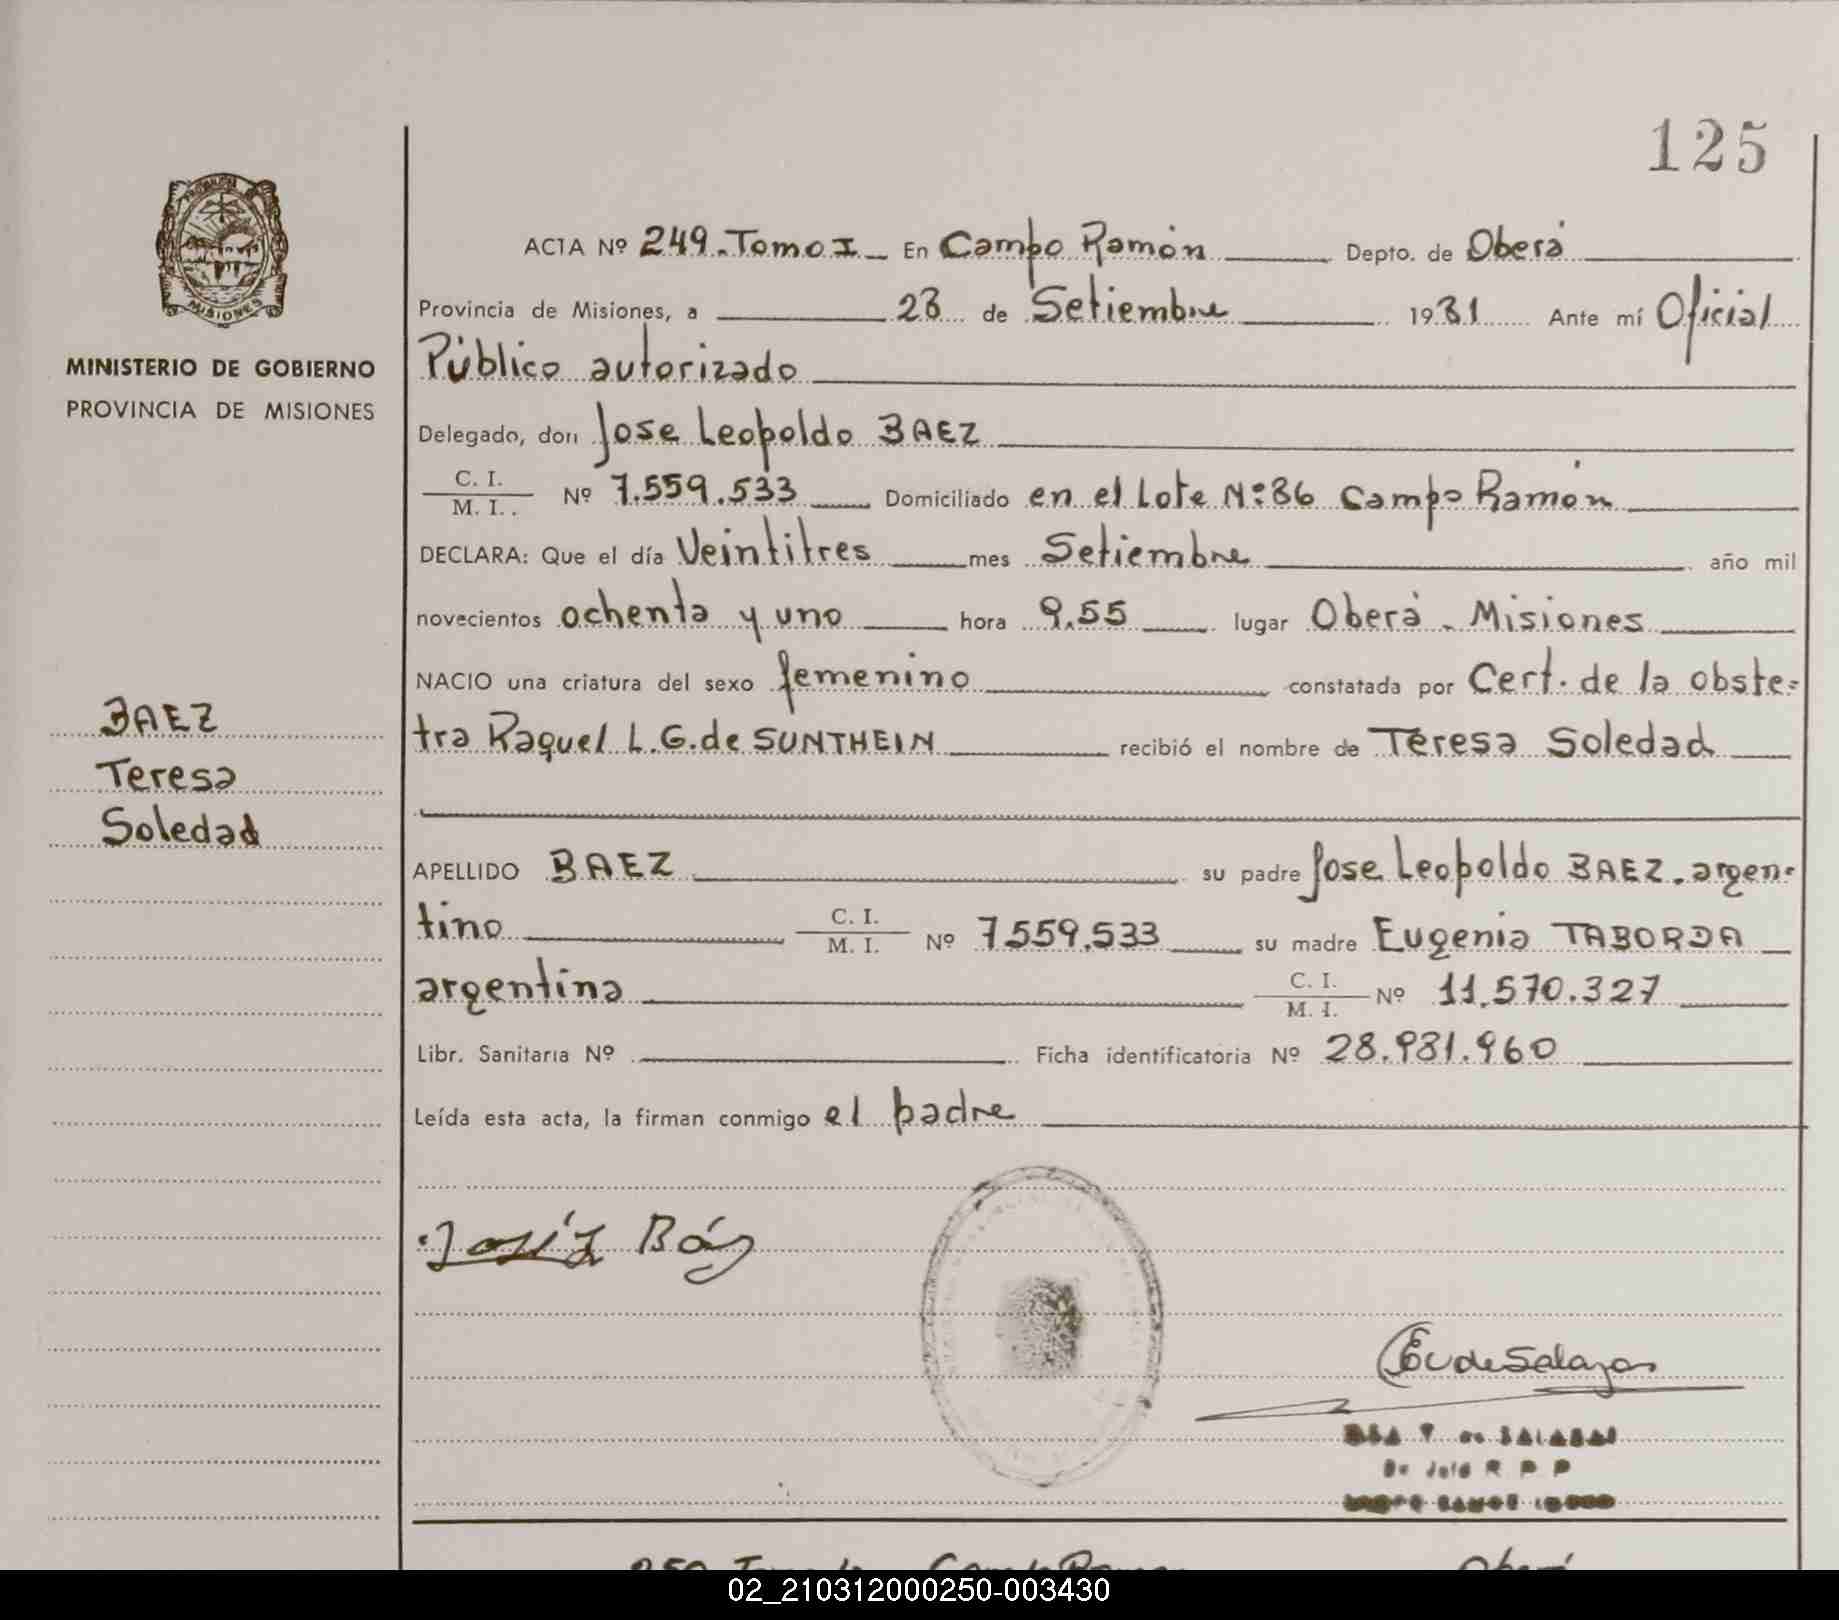 125
ACTA Nº 249. Tomo I En Campo Ramón Depto. de Oberá
Provincia de Misiones, a 28 de Setiembre 1981 Ante mí Oficial
Público autorizado
Delegado, don Jose Leopoldo BAEZ
C. I. / M. I. . Nº 7.559.533 Domiciliado en el Lote Nº 86 Campo Ramón
DECLARA: Que el día Veintitres mes Setiembre año mil
novecientos ochenta y uno hora 9.55 lugar Oberá - Misiones
NACIO una criatura del sexo femenino constatada por Cert. de la obste=
tra Raquel L.G. de SUNTHEIN recibió el nombre de Teresa Soledad
APELLIDO BAEZ su padre Jose Leopoldo BAEZ. argen-
tino C. I. / M. I. Nº 7559.533 su madre Eugenia TABORDA
argentina C. I. / M. I. Nº 11.570.327
Libr. Sanitaria Nº Ficha identificatoria Nº 28.981.960
Leída esta acta, la firman conmigo el padre
MISIONES
MINISTERIO DE GOBIERNO
PROVINCIA DE MISIONES
BAEZ
Teresa
Soledad
José L Báez
de Salazar
02_210312000250-003430